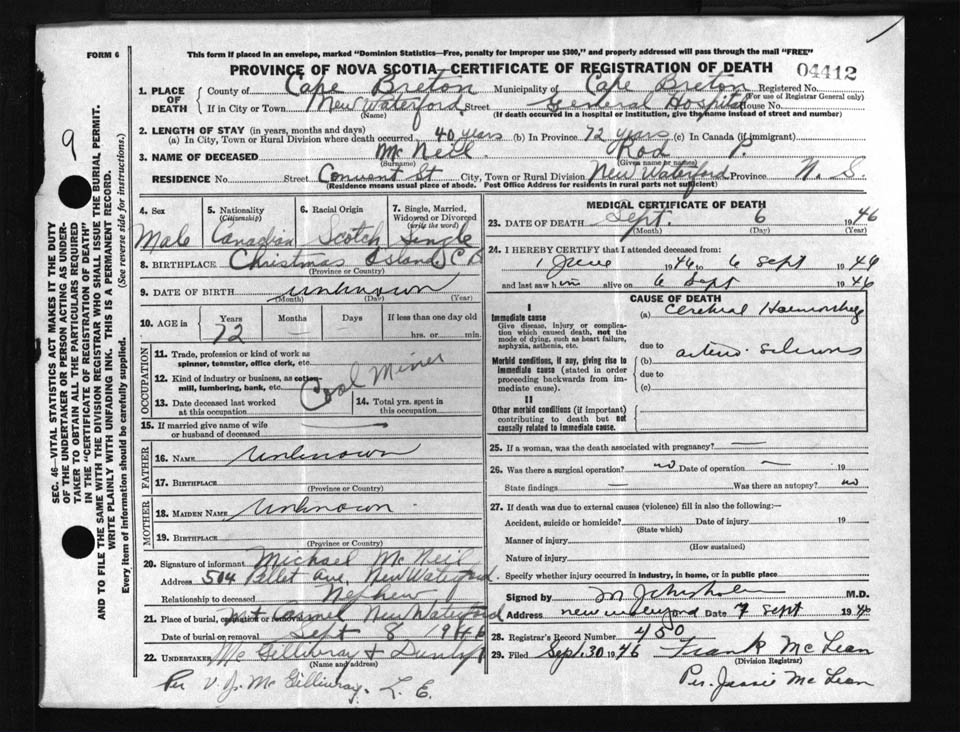 FORM 6
This form if placed in an envelope, marked "Dominion Statistics—Free, penalty for improper use $300," and properly addressed will pass through the mail "FREE"
PROVINCE OF NOVA SCOTIA—CERTIFICATE OF REGISTRATION OF DEATH 04412
1. PLACE OF DEATH County of Cape Breton Municipality of Cape Breton Registered No.
(For use of Registrar General only)
If in City or Town New Waterford Street General Hospital House No.
(Name) (If death occurred in a hospital or institution, give the name instead of street and number)
2. LENGTH OF STAY (in years, months and days)
(a) In City, Town or Rural Division where death occurred 40 years (b) In Province 72 years (c) In Canada (if immigrant)
3. NAME OF DECEASED Mc Neil Rod P.
(Surname) (Given name or names)
RESIDENCE No. Street Convent St City, Town or Rural Division New Waterford Province N. S.
(Residence means usual place of abode. Post Office Address for residents in rural parts not sufficient)
4. Sex 5. Nationality (Citizenship) 6. Racial Origin 7. Single, Married, Widowed or Divorced (write the word)
Male Canadian Scotch Single
8. BIRTHPLACE Christmas Island C B
(Province or Country)
9. DATE OF BIRTH unknown
(Month) (Day) (Year)
10. AGE in Years Months Days If less than one day old
72 hrs. or min.
OCCUPATION
11. Trade, profession or kind of work as spinner, teamster, office clerk, etc.
12. Kind of industry or business, as cotton-mill, lumbering, bank, etc. Coal Miner
13. Date deceased last worked at this occupation 14. Total yrs. spent in this occupation
15. If married give name of wife or husband of deceased —
FATHER
16. NAME unknown
17. BIRTHPLACE
(Province or Country)
MOTHER
18. MAIDEN NAME unknown
19. BIRTHPLACE
(Province or Country)
20. Signature of informant Michael Mc Neil
Address 504 Ave, New Waterford
Relationship to deceased Nephew
21. Place of burial, cremation or removal Mt Carmel New Waterford
Date of burial or removal Sept 8 1946
22. UNDERTAKER Mc Gillivray & Dunlop
(Name and address)
Per V. J. Mc Gillivray. L. E.
MEDICAL CERTIFICATE OF DEATH
23. DATE OF DEATH Sept. 6 1946
(Month) (Day) (Year)
24. I HEREBY CERTIFY that I attended deceased from:
1 June 1946 to 6 Sept 1946
and last saw him alive on 6 Sept 1946
CAUSE OF DEATH
I
Immediate cause
Give disease, injury or complication which caused death, not the mode of dying, such as heart failure, asphyxia, asthenia, etc.
(a) Cerebral Haemorrhage
due to
Morbid conditions, if any, giving rise to immediate cause (stated in order proceeding backwards from immediate cause).
(b) arterio-sclerosis
due to
(c)
II
Other morbid conditions (if important) contributing to death but not causally related to immediate cause.
25. If a woman, was the death associated with pregnancy? —
26. Was there a surgical operation? no Date of operation — 19
State findings — Was there an autopsy? no
27. If death was due to external causes (violence) fill in also the following:—
Accident, suicide or homicide? Date of injury 19
(State which)
Manner of injury
(How sustained)
Nature of injury
Specify whether injury occurred in industry, in home, or in public place
Signed by M J Chisholm M.D.
Address new waterford Date 7 Sept 1946
28. Registrar's Record Number 450
29. Filed Sept. 30 1946 Frank Mc Lean
(Division Registrar)
Per. Jessie Mc Lean
9
SEC. 46—VITAL STATISTICS ACT MAKES IT THE DUTY
OF THE UNDERTAKER OR PERSON ACTING AS UNDER-
TAKER TO OBTAIN ALL THE PARTICULARS REQUIRED
IN THE "CERTIFICATE OF REGISTRATION OF DEATH"
AND TO FILE THE SAME WITH THE DIVISION REGISTRAR WHO SHALL ISSUE THE BURIAL PERMIT.
WRITE PLAINLY WITH UNFADING INK. THIS IS A PERMANENT RECORD.
Every item of information should be carefully supplied. (See reverse side for instructions.)
46